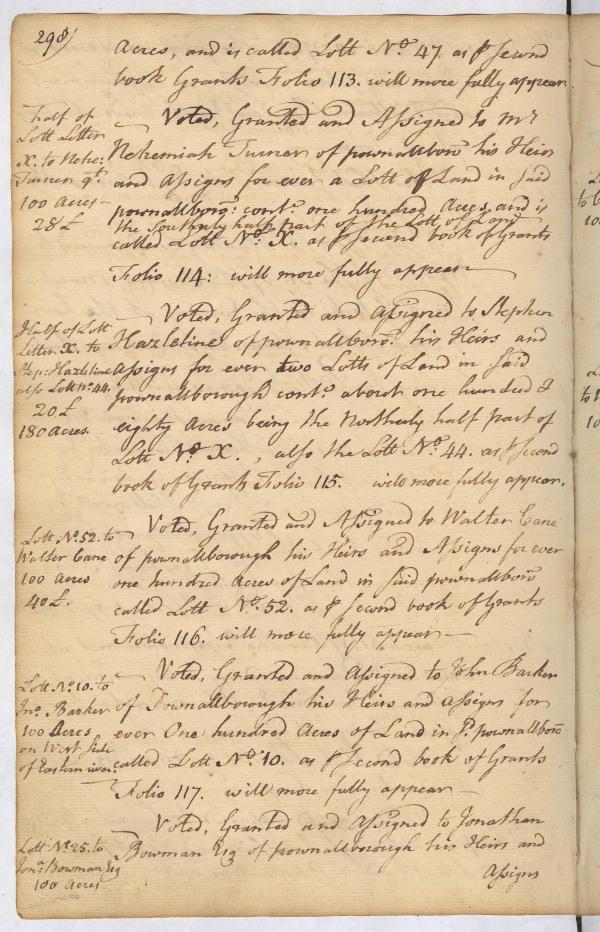 298)
Acres, and is called Lott No. 47 as ⅌ Second
book Grants Folio 113. will more fully appear
half of
Lott Letter
X. to Nehe:
Turner qt.
100 Acres
28£
Voted, Granted and Assigned to Mr
Nehemiah Turner of pownallboro: his Heirs
and Assigns for ever a Lott of Land in said
pownallboro: contg. one hundred Acres, and is
the Southerly half part of the Lott of Land
called Lott No. X. as ⅌ Second book of Grants
Folio 114: will more fully appear
Half of Lott
Letter X. to
Step: Hazletine
also Lott No. 44.
20£
180 Acres.
Voted, Granted and Assigned to Stephen
Hazletine of pownallboro: his Heirs and
Assigns for ever two Lotts of Land in said
pownallborough contg. about one hundred &
eighty Acres being the Northerly half part of
Lott No. X., also the Lott No. 44. as ⅌ Second
book of Grants Folio 115. will more fully appear.
Lott No. 52. to
Walter Cane
100 Acres
40£.
Voted, Granted and Assigned to Walter Cane
of pownallborough his Heirs and Assigns for ever
one hundred Acres of Land in said pownallboro
called Lott No. 52. as ⅌ Second book of Grants
Folio 116. will more fully appear —
Lott No. 10. to
Jno. Barker
100 Acres
on West side
of Eastern river.
Voted, Granted and Assigned to John Barker
of Pownallborough his Heirs and assigns for
ever One hundred Acres of Land in sd. pownallboro
called Lott No. 10. as ⅌ Second book of Grants
Folio 117. will more fully appear —
Lott No. 25. to
Jona. Bowman Esq
100 Acres
Voted, Granted and Assigned to Jonathan
Bowman Esq of pownallborough his Heirs and
Assigns